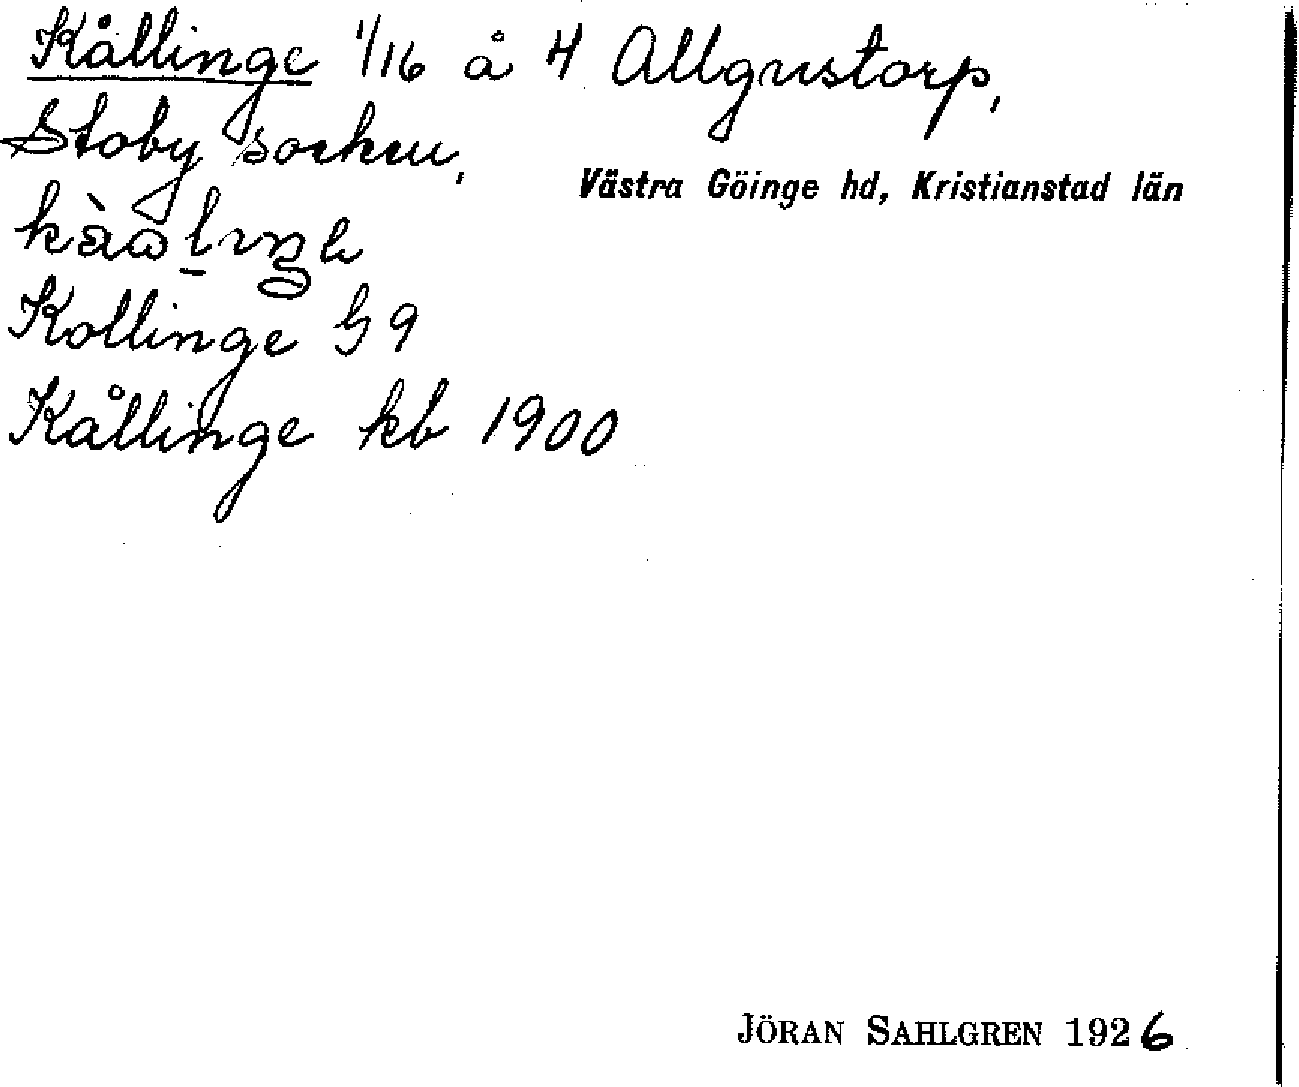 Kållinge 1/16 å 4 Allgustorp,
Stoby socken,
Västra Göinge hd, Kristianstad län
Kollinge G 9
Kållinge kb 1900
JÖRAN SAHLGREN 1926